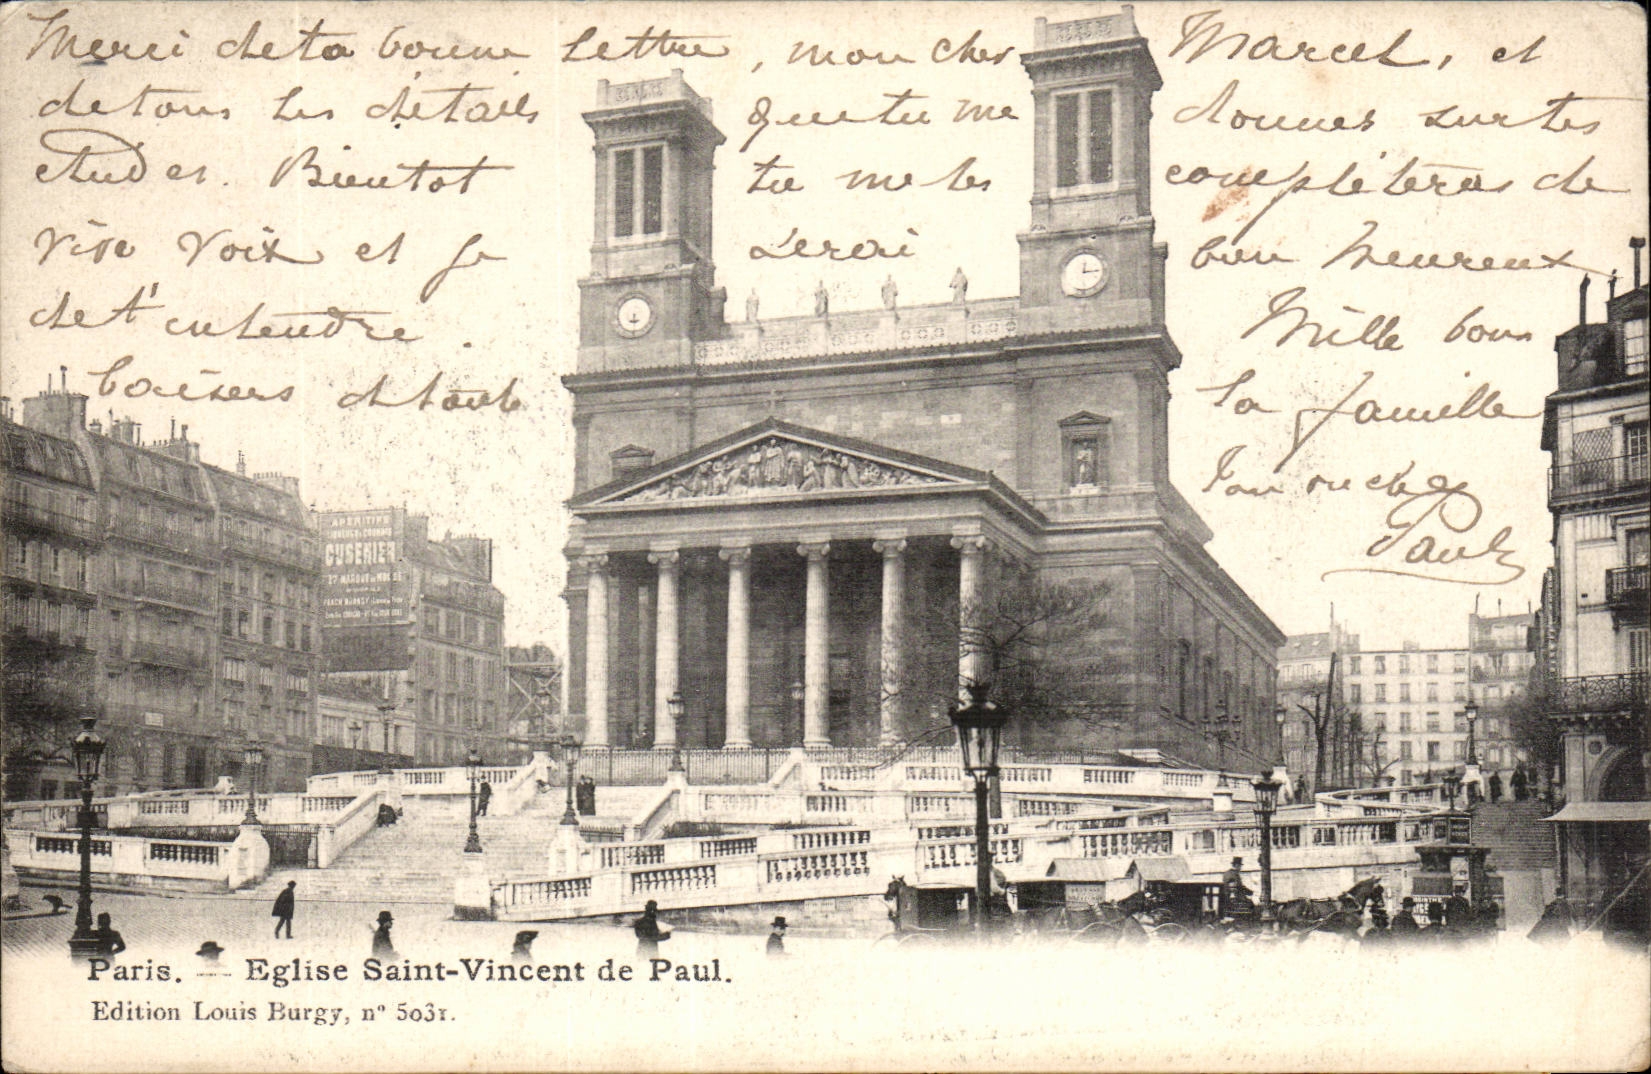 Merci de ta bonne lettre, mon cher Marcel, et
de tous les détails que tu me donnes sur tes
études. Bientot tu me les complèteras de
vive voix et je serai bien heureux
de t'entendre. Mille bons
baisers de toute la famille
Ton oncle
Paul
APÉRITIFS
CUSENIER
Paris. — Eglise Saint-Vincent de Paul.
Edition Louis Burgy, n° 5031.